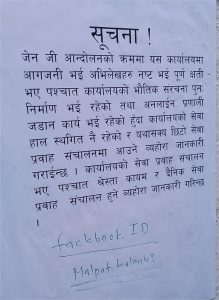 सूचना !
जेन जी आन्दोलनको क्रममा यस कार्यालयमा
आगजनी भई अभिलेखहरु नष्ट भई पूर्ण क्षती
भए पश्चात कार्यालयको भौतिक संरचना पुनः
निर्माण भई रहेको तथा अनलाईन प्रणाली
जडान कार्य भई रहेको हुंदा कार्यालयको सेवा
हाल स्थगित नै रहेको र यथासक्य छिटो सेवा
प्रवाह संचालनमा आउने व्यहोरा जानकारी
गराईन्छ । कार्यालयको सेवा प्रवाह संचालन
भए पश्चात श्रेस्ता कायम र दैनिक सेवा
प्रवाह संचालन हुने व्यहोरा जानकारी गरिन्छ
।
fackbook ID
Malpot kalanki